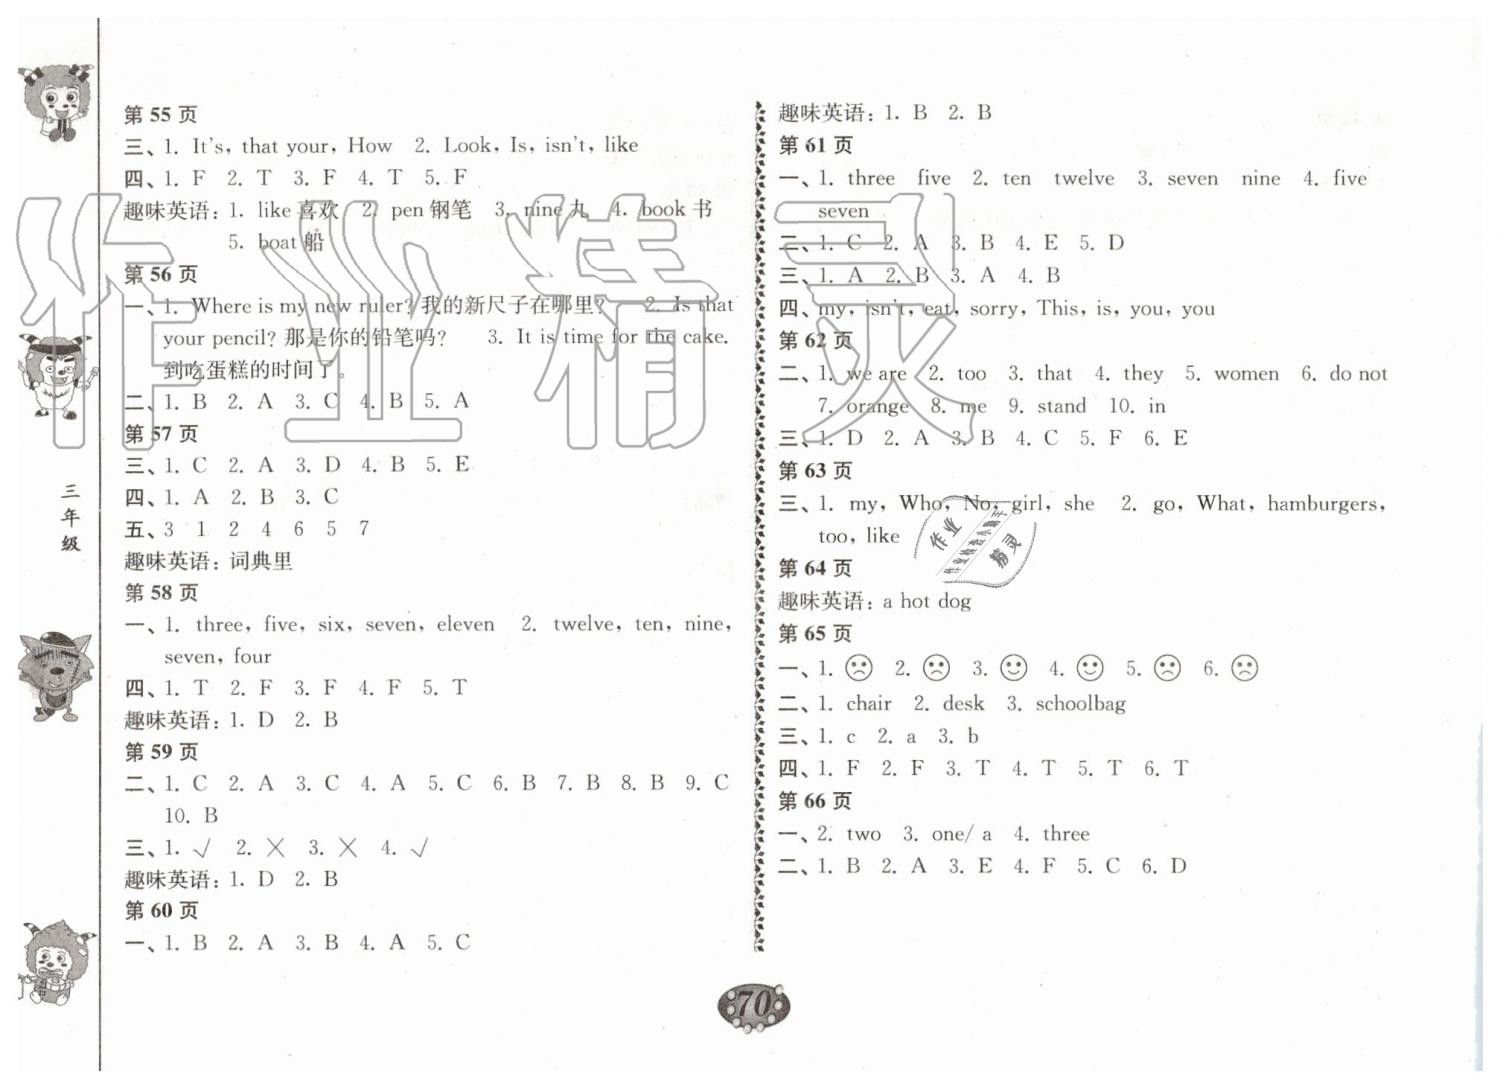 三年级
第 55 页
三、1. It's, that your, How 2. Look, Is, isn't, like
四、1. F 2. T 3. F 4. T 5. F
趣味英语: 1. like 喜欢 2. pen 钢笔 3. nine 九 4. book 书
5. boat 船
第 56 页
一、1. Where is my new ruler? 我的新尺子在哪里? 2. Is that
your pencil? 那是你的铅笔吗? 3. It is time for the cake.
到吃蛋糕的时间了。
二、1. B 2. A 3. C 4. B 5. A
第 57 页
三、1. C 2. A 3. D 4. B 5. E
四、1. A 2. B 3. C
五、3 1 2 4 6 5 7
趣味英语: 词典里
第 58 页
一、1. three, five, six, seven, eleven 2. twelve, ten, nine,
seven, four
四、1. T 2. F 3. F 4. F 5. T
趣味英语: 1. D 2. B
第 59 页
二、1. C 2. A 3. C 4. A 5. C 6. B 7. B 8. B 9. C
10. B
三、1. √ 2. × 3. × 4. √
趣味英语: 1. D 2. B
第 60 页
一、1. B 2. A 3. B 4. A 5. C
趣味英语: 1. B 2. B
第 61 页
一、1. three five 2. ten twelve 3. seven nine 4. five
seven
二、1. C 2. A 3. B 4. E 5. D
三、1. A 2. B 3. A 4. B
四、my, isn't, eat, sorry, This, is, you, you
第 62 页
二、1. we are 2. too 3. that 4. they 5. women 6. do not
7. orange 8. me 9. stand 10. in
三、1. D 2. A 3. B 4. C 5. F 6. E
第 63 页
三、1. my, Who, No, girl, she 2. go, What, hamburgers,
too, like
第 64 页
趣味英语: a hot dog
第 65 页
一、1. ☹ 2. ☹ 3. ☺ 4. ☺ 5. ☹ 6. ☹
二、1. chair 2. desk 3. schoolbag
三、1. c 2. a 3. b
四、1. F 2. F 3. T 4. T 5. T 6. T
第 66 页
一、2. two 3. one/ a 4. three
二、1. B 2. A 3. E 4. F 5. C 6. D
70
作业精灵
作业
精灵